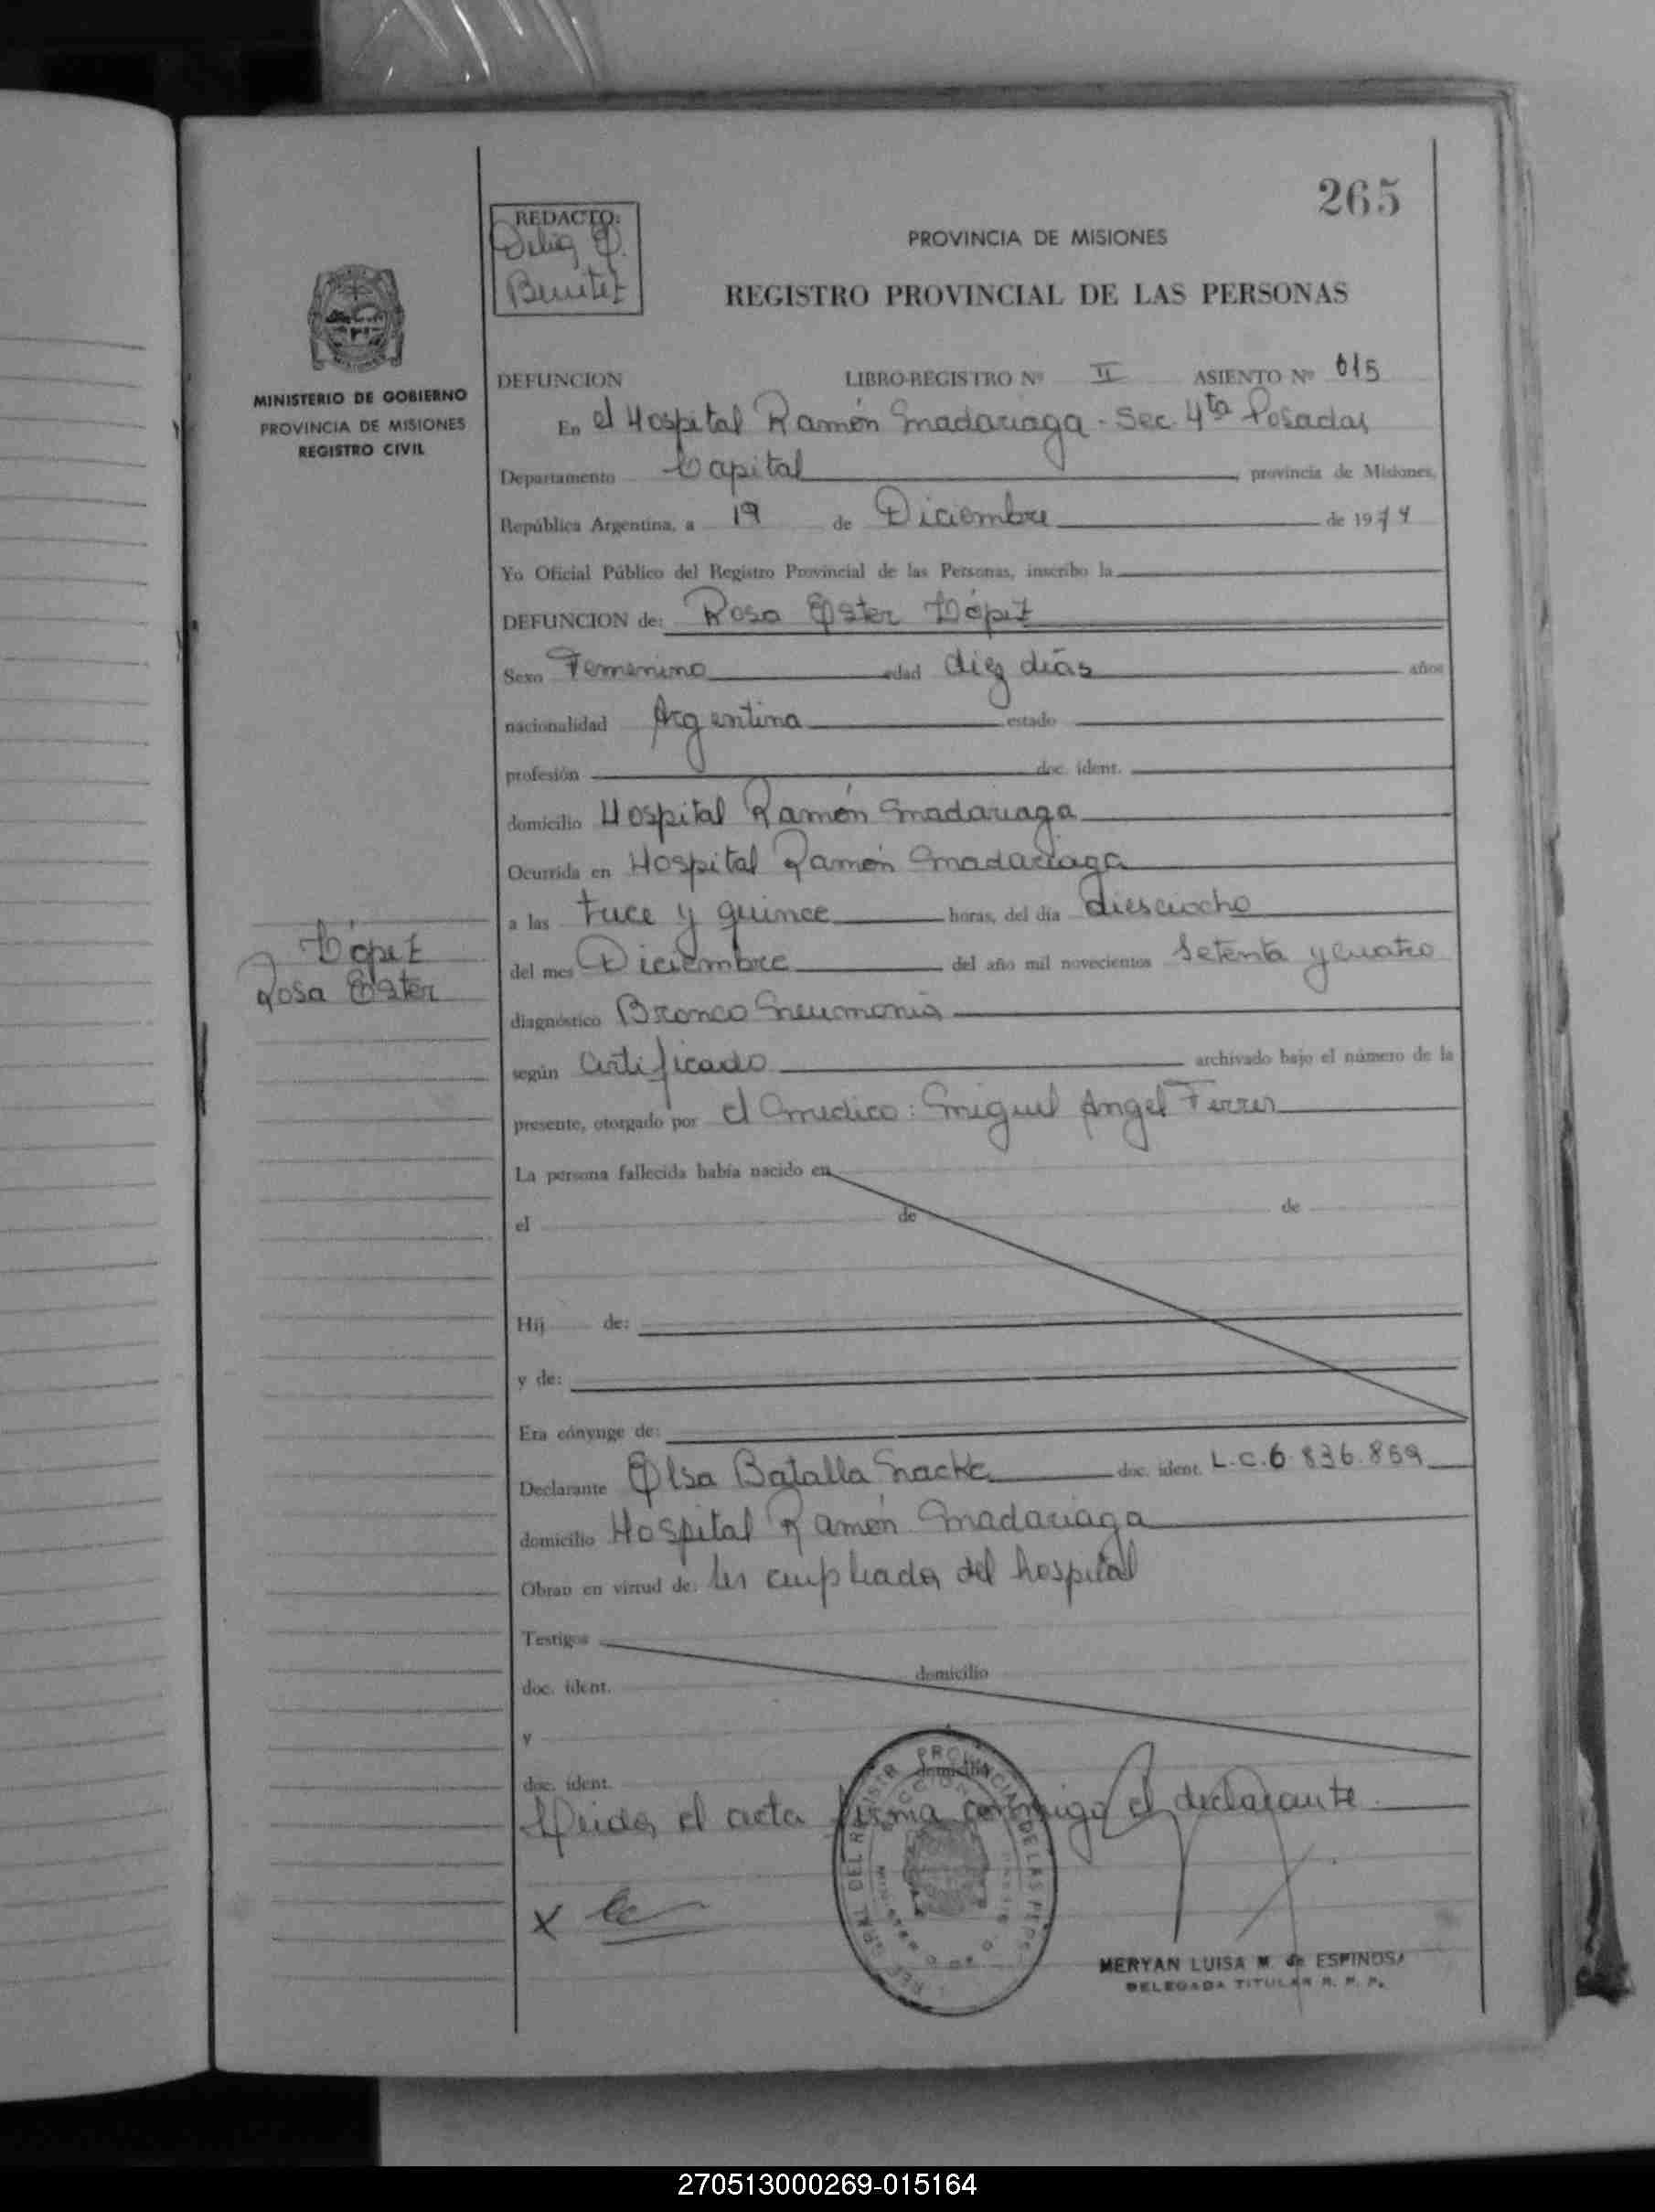 265
REDACTO:
Delia E.
Benitez
PROVINCIA DE MISIONES
REGISTRO PROVINCIAL DE LAS PERSONAS
MINISTERIO DE GOBIERNO
PROVINCIA DE MISIONES
REGISTRO CIVIL
DEFUNCION LIBRO-REGISTRO Nº II ASIENTO Nº 615
En el Hospital Ramón Madariaga - Sec. 4ta Posadas
Departamento Capital , provincia de Misiones,
República Argentina, a 19 de Diciembre de 1974
Yo Oficial Público del Registro Provincial de las Personas, inscribo la
DEFUNCION de: Rosa Ester López
Sexo Femenino edad diez días años
nacionalidad Argentina estado
profesión doc. ident.
domicilio Hospital Ramón Madariaga
Ocurrida en Hospital Ramón Madariaga
a las trece y quince horas, del día diesciocho
del mes Diciembre del año mil novecientos Setenta y cuatro
López
Rosa Ester
diagnóstico Bronco Neumonia
según certificado archivado bajo el número de la
presente, otorgado por el Medico: Miguel Angel Ferrer
La persona fallecida había nacido en
el de de
Hij de:
y de:
Era cónyuge de:
Declarante Elsa Batalla Nacke doc. ident. L.C. 6.836.859
domicilio Hospital Ramón Madariaga
Obran en virtud de: ser empleada del hospital
Testigos
doc. ident. domicilio
y
doc. ident. domicilio
Leida el acta firma conmigo el declarante
X
MERYAN LUISA M. de ESPINOSA
DELEGADA TITULAR R. P. P.
270513000269-015164